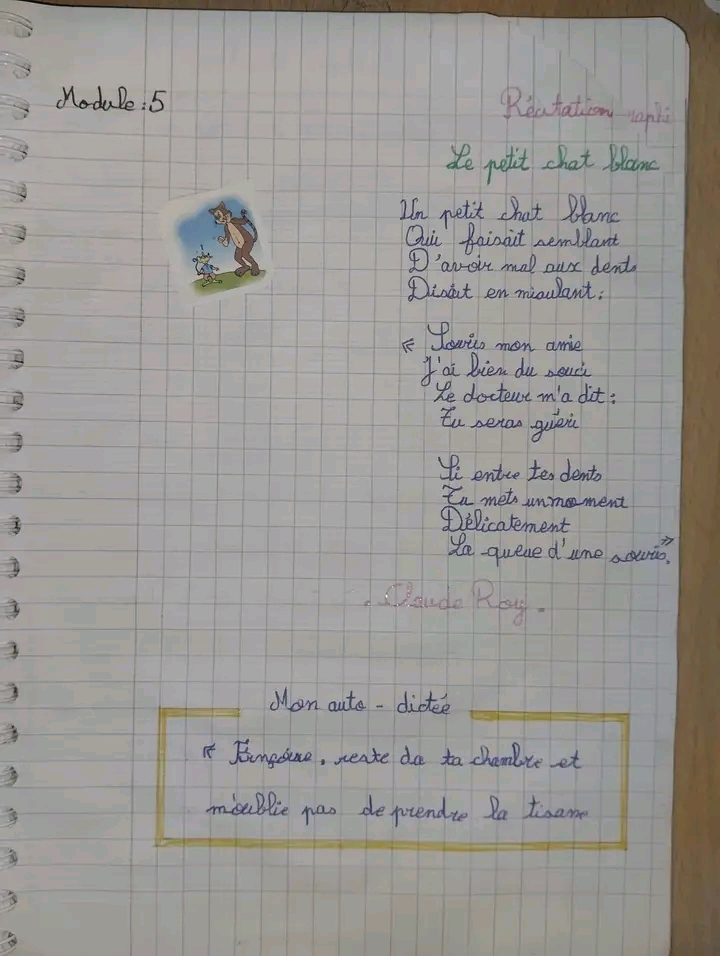 Module : 5
Récitation
Le petit chat blanc
Un petit chat blanc
Qui faisait semblant
D'avoir mal aux dents
Disait en miaulant :
« Souris mon amie
J'ai bien du souci
Le docteur m'a dit :
Tu seras guéri
Si entre tes dents
Tu mets un moment
Délicatement
La queue d'une souris. »
. Claude Roy .
Mon auto - dictée
« , reste da ta chambre et
n'oublie pas de prendre la tisane